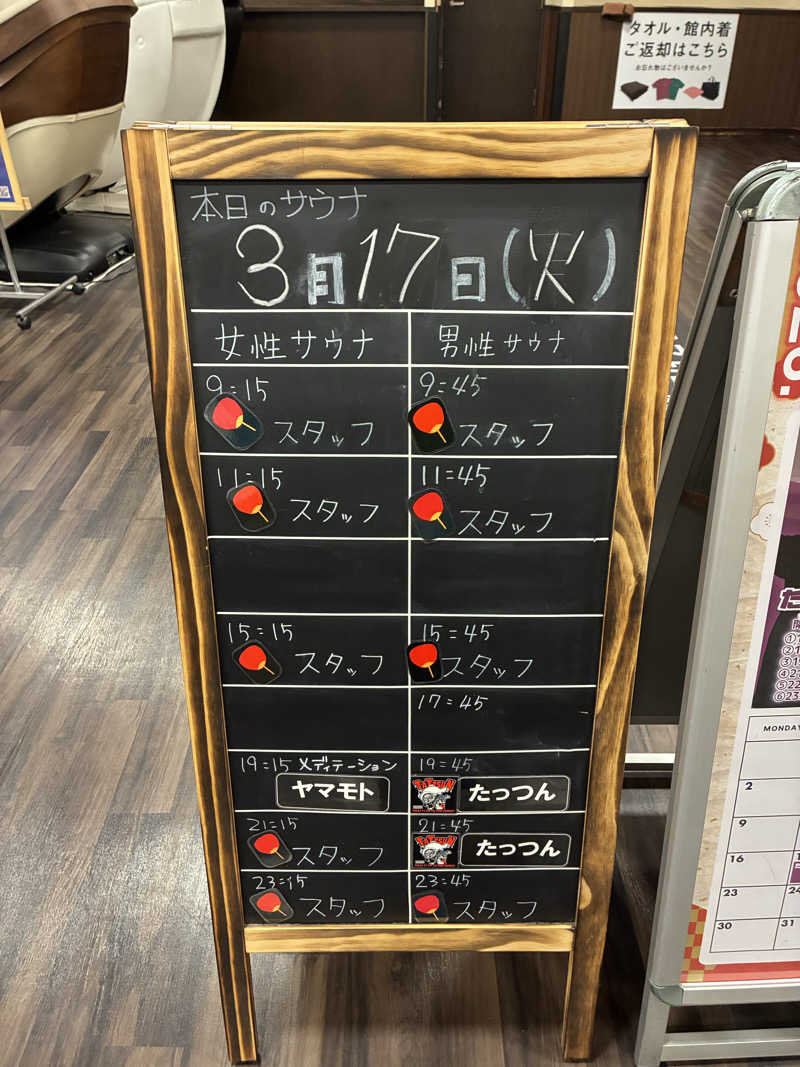 タオル・館内着
ご返却はこちら
お忘れ物はございませんか？
本日のサウナ
3月17日(火)
女性サウナ 男性サウナ
9=15 9=45
スタッフ スタッフ
11=15 11=45
スタッフ スタッフ
15=15 15=45
スタッフ スタッフ
17=45
19=15 メディテーション 19=45
ヤマモト たっつん
21=15 21=45
スタッフ たっつん
23=15 23=45
スタッフ スタッフ
MONDAY
2
9
16
23 24
30 31